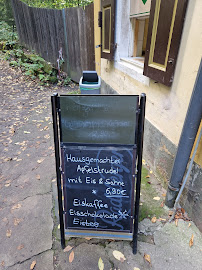 Hausgemachter
Apfelstrudel
mit Eis & Sahne
* 6,80€
Eiskaffee
Eisschokolade
Eistee